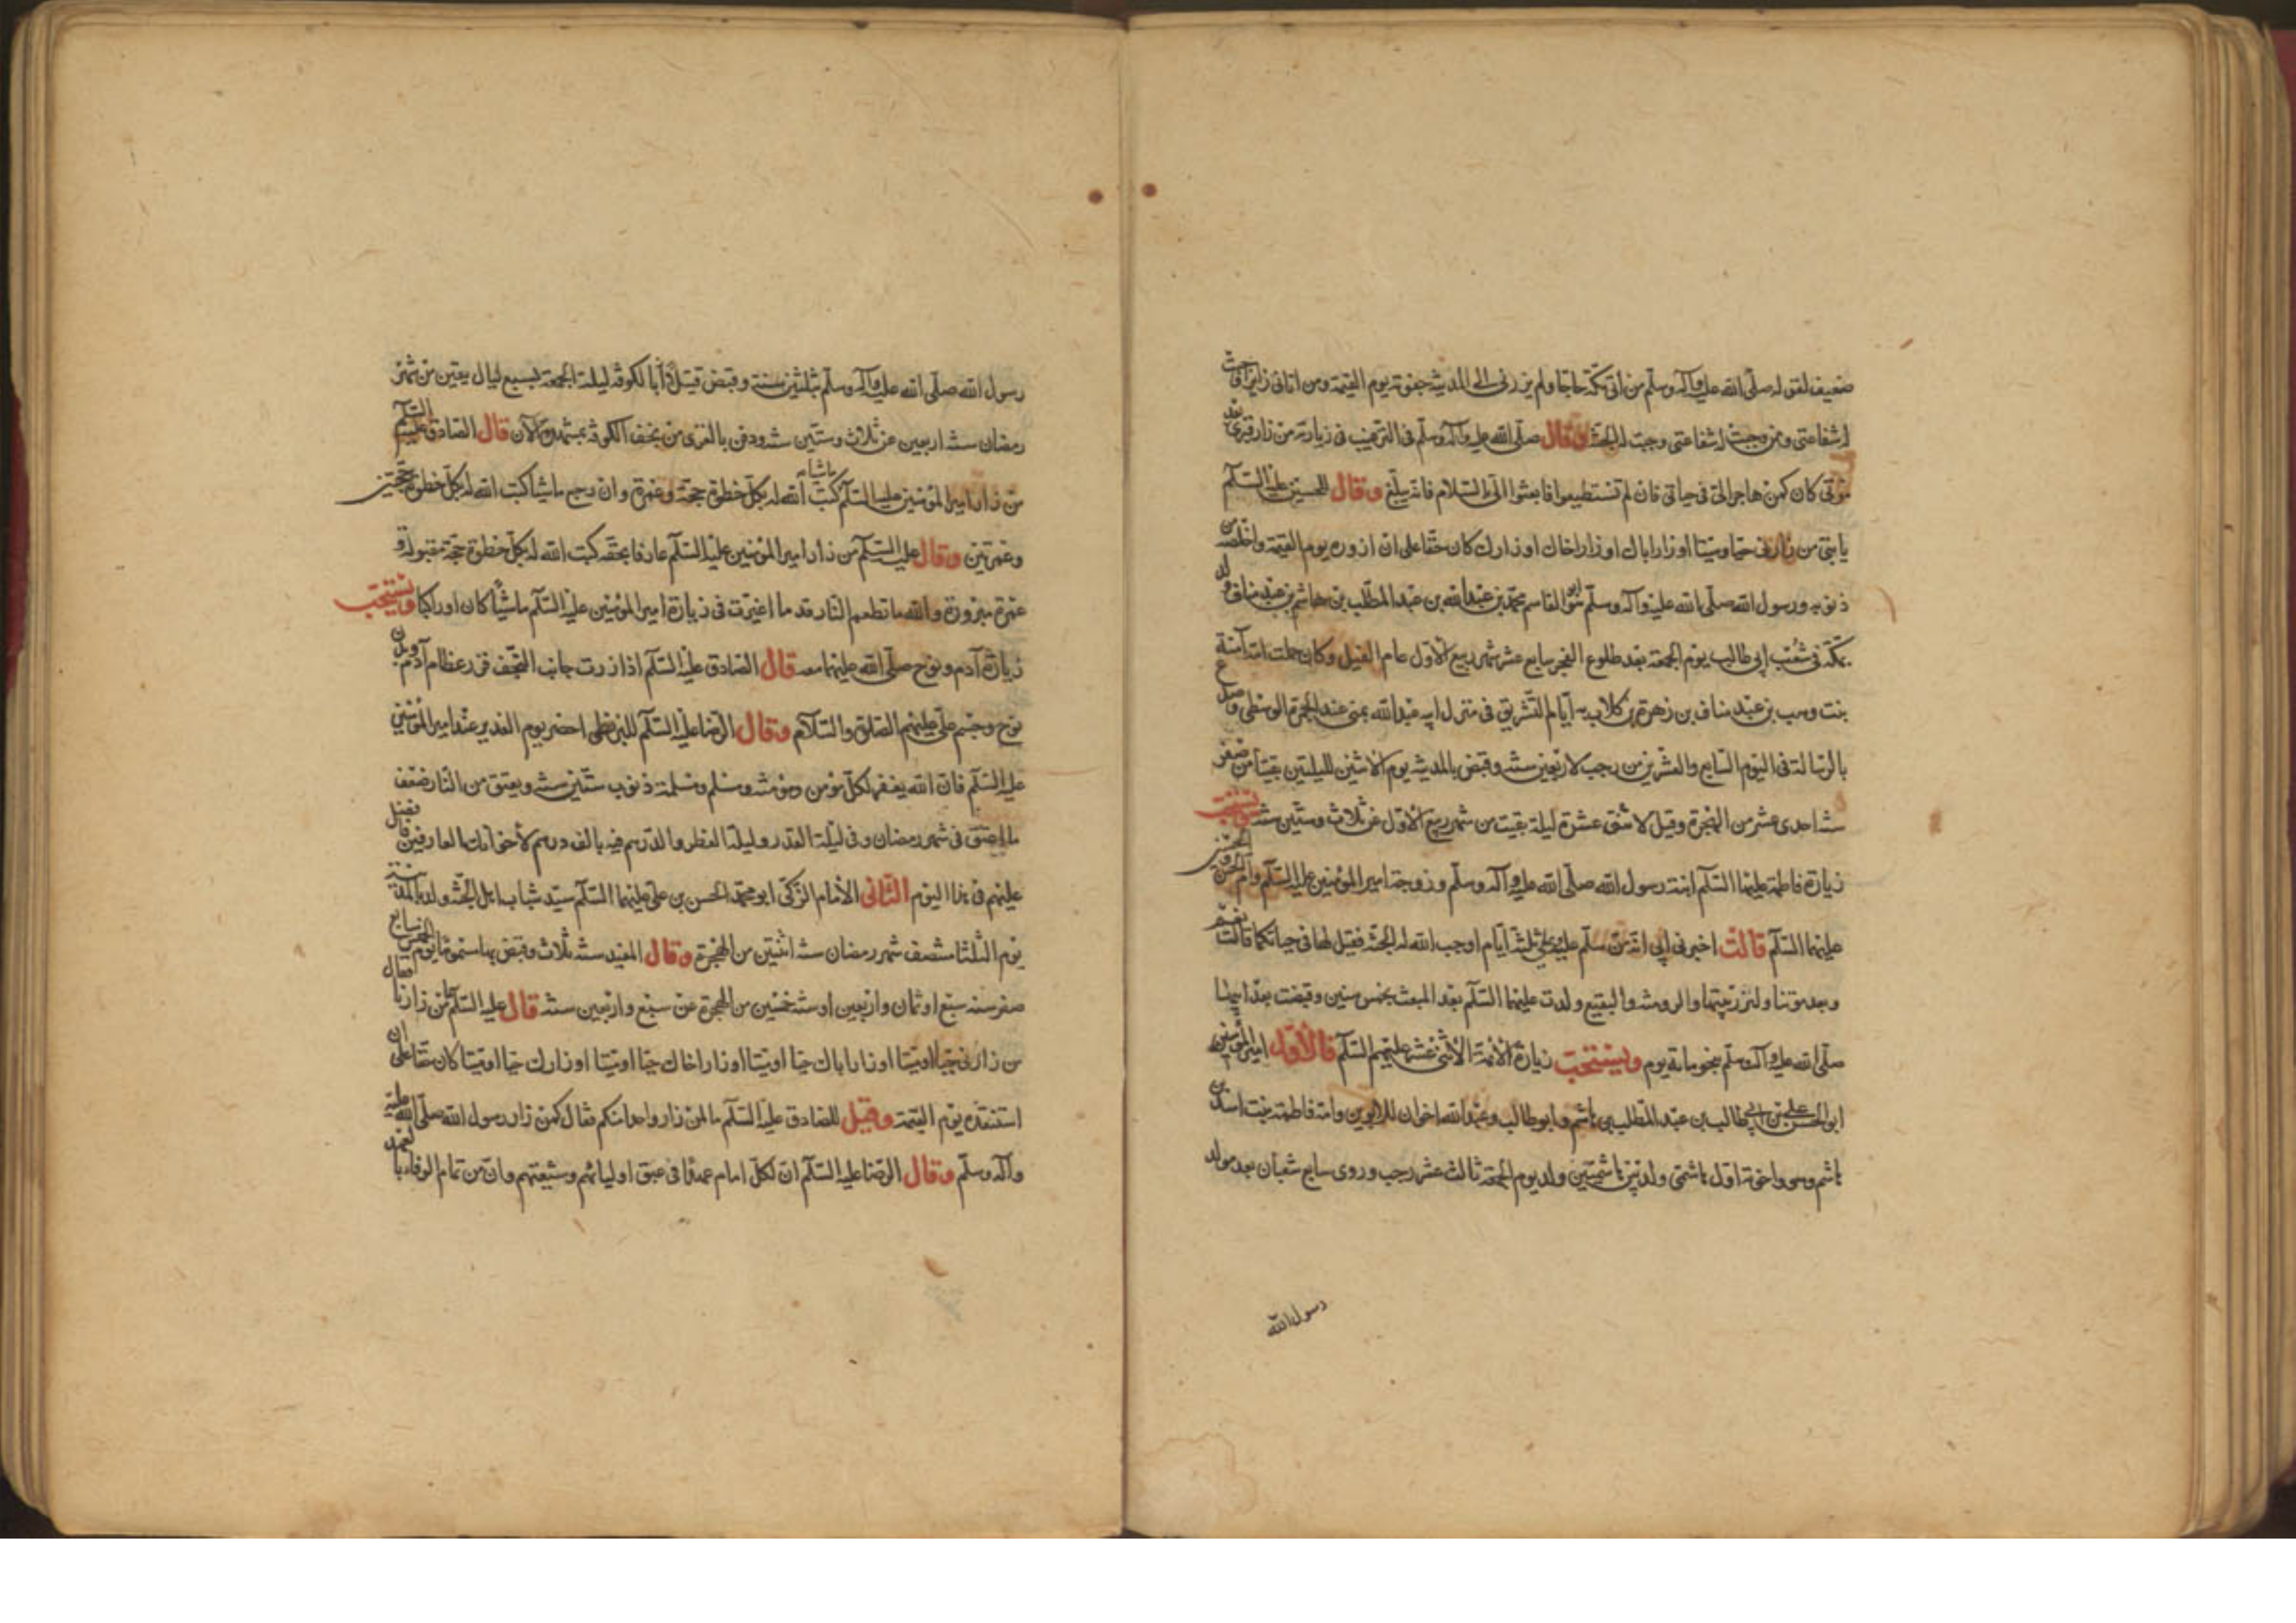 ضعيف لقوله صلّى الله عليه وآله وسلّم من اتى مكّة حاجّا ولم يزرنى الى المدينة جفوته يوم القيمة ومن اتانى زايرا وجبت
له شفاعتى ومن وجبت له شفاعتى وجبت له الجنّة وقال صلّى الله عليه وآله وسلّم فى الترغيب فى زيارته من زار قبرى بعد
موتى كان كمن هاجر الىّ فى حياتى فان لم تستطيعوا فابعثوا الىّ بالسّلام فانّه يبلغنى وقال للحسين عليه السّلام
يا بنىّ من زارنى حيّا وميّتا او زار اباك او زار اخاك او زارك كان حقّا على ان ازوره يوم القيمة واخلّصه من
ذنوبه ورسول الله صلّى الله عليه وآله وسلّم هو ابو القاسم محمّد بن عبد الله بن عبد المطّلب بن هاشم بن عبد مناف ولد
بمكّة فى شعب ابى طالب يوم الجمعة بعد طلوع الفجر سابع عشر شهر ربيع الاوّل عام الفيل وكان حملت امّه آمنة
بنت وهب بن عبد مناف بن زهرة بن كلاب به ايّام التّشريق فى منزل ابيه عبد الله بمنى عند الجمرة الوسطى وصدع
بالرّسالة فى اليوم السّابع والعشرين من رجب لاربعين سنة وقبض بالمدينة يوم الاثنين لليلتين بقيتا من صفر
سنة احدى عشر من الهجرة وقيل لاثنتى عشرة ليلة بقيت من شهر ربيع الاوّل عن ثلاث وستّين سنة ويستحبّ
زيارة فاطمة عليها السّلام ابنة رسول الله صلّى الله عليه وآله وسلّم وزوجة امير المؤمنين عليه السّلام وامّ الحسن والحسين
عليهما السّلام قالت اخبرنى ابى انّه من سلّم عليه وعلىّ ثلثة ايّام اوجب الله له الجنّة فقيل لها فى حياتكما قالت نعم
وبعد موتنا ولتزر ببيتها والروضة والبقيع ولدت عليها السّلام بعد المبعث بخمس سنين وقبضت بعد ابيها
صلّى الله عليه وآله وسلّم بنحو مائة يوم ويستحبّ زيارة الائمّة الاثنى عشر عليهم السّلام فالاوّل امير المؤمنين
ابو الحسن علىّ بن ابى طالب بن عبد المطّلب بن هاشم وابو طالب وعبد الله اخوان للابوين وامّه فاطمة بنت اسد بن
هاشم وهو واخوته اوّل هاشمىّ ولد بين هاشميّين ولد يوم الجمعة ثالث عشر رجب وروى سابع شعبان بعد مولد
رسول الله
رسول الله صلّى الله عليه وآله وسلّم بثلثين سنة وقبض قتيلا بالكوفة ليلة الجمعة لتسع ليال بقين من شهر
رمضان سنة اربعين عن ثلاث وستّين سنة ودفن بالغرى من نجف الكوفة بمشهده الآن قال الصّادق عليه السّلام
من زار امير المؤمنين عليه السّلام ماشيا كتب الله له بكلّ خطوة حجّة وعمرة وان رجع ماشيا كتب الله له بكلّ خطوة حجّتين
وعمرتين وقال عليه السّلام من زار امير المؤمنين عليه السّلام عارفا بحقّه كتب الله له بكلّ خطوة حجّة مقبولة و
عمرة مبرورة والله ما تطعم النّار قدما اغبرّت فى زيارة امير المؤمنين عليه السّلام ماشيا كان او راكبا ويستحبّ
زيارة آدم ونوح صلّى الله عليهما معه قال الصّادق عليه السّلام اذا زرت جانب النّجف فزر عظام آدم وبدن
نوح وجسم علىّ عليهم الصّلوة والسّلام وقال الرّضا عليه السّلام للبزنطى احضر يوم الغدير عند امير المؤمنين
عليه السّلام فانّ الله يغفر لكلّ مؤمن ومؤمنة ومسلم ومسلمة ذنوب ستّين سنة ويعتق من النّار ضعف
ما اعتق فى شهر رمضان وفى ليلة القدر وليلة الفطر والدّرهم فيه بالف درهم لاخوانك العارفين فافضل
عليهم فى هذا اليوم الثّانى الامام الزّكى ابو محمّد الحسن بن علىّ عليهما السّلام سيّد شباب اهل الجنّة ولد بالمدينة
يوم الثّلثا منتصف شهر رمضان سنة اثنتين من الهجرة وقال المفيد سنة ثلاث وقبض بها مسموما يوم الخميس سابع
صفر سنة سبع او ثمان واربعين او سنة خمسين من الهجرة عن سبع واربعين سنة قال عليه السّلام لمن زارنا
من زارنى حيّا او ميّتا او زار اباك حيّا او ميّتا او زار اخاك حيّا او ميّتا او زارك حيّا او ميّتا كان حقّا علىّ ان
استنقذه يوم القيمة وقيل للصّادق عليه السّلام ما لمن زار واحدا منكم فقال كمن زار رسول الله صلّى الله عليه
وآله وسلّم وقال الرّضا عليه السّلام انّ لكلّ امام عهدا فى عنق اوليائهم وشيعتهم وانّ من تمام الوفاء بالعهد